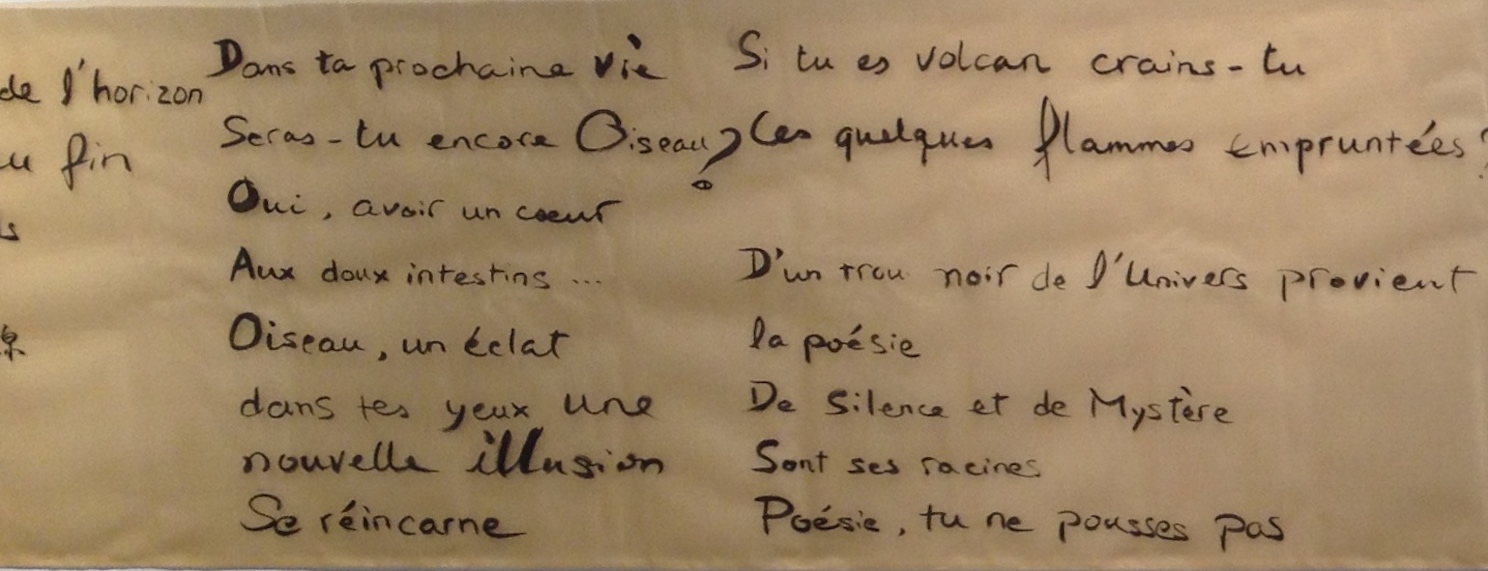 de l'horizon
u fin
s
Dans ta prochaine vie
Seras-tu encore Oiseau?
Oui, avoir un coeur
Aux doux intestins ...
Oiseau, un éclat
dans tes yeux une
nouvelle illusion
Se réincarne
Si tu es volcan crains-tu
Les quelques flammes empruntées?
D'un trou noir de l'Univers provient
la poésie
De Silence et de Mystère
Sont ses racines
Poésie, tu ne pousses pas